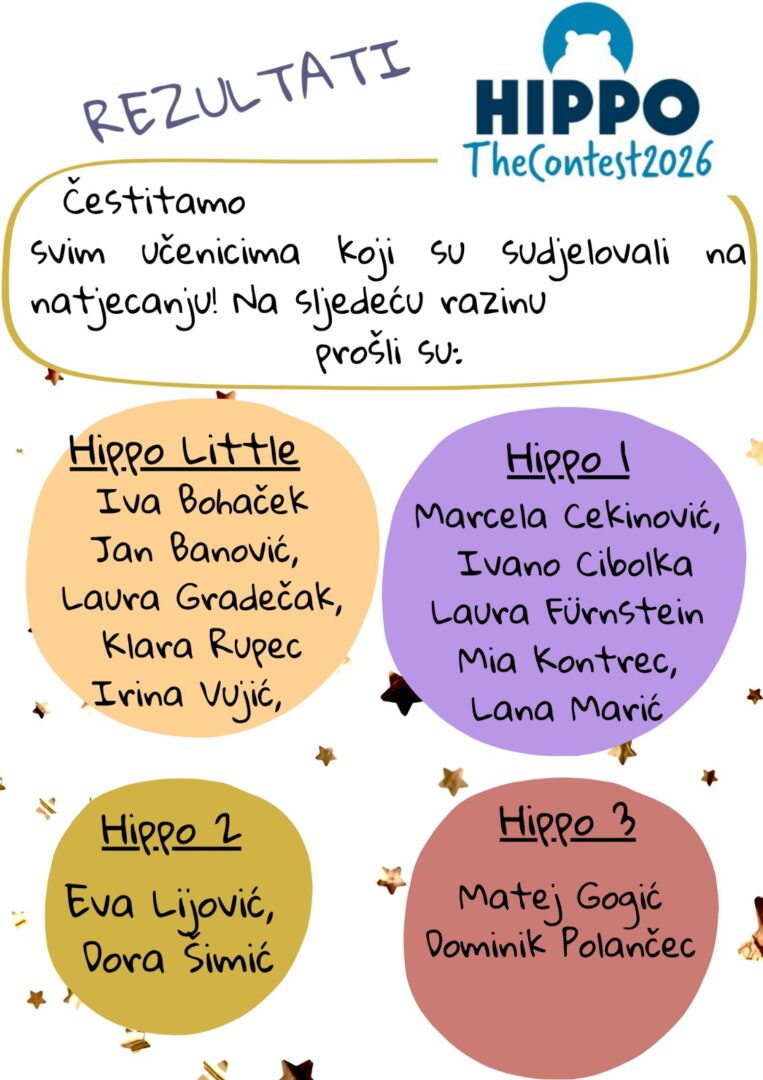 REZULTATI
HIPPO
TheContest2026
Čestitamo
svim učenicima koji su sudjelovali na
natjecanju! Na sljedeću razinu
prošli su:
Hippo Little
Iva Bohaček
Jan Banović,
Laura Gradečak,
Klara Rupec
Irina Vujić,
Hippo 1
Marcela Cekinović,
Ivano Cibolka
Laura Fürnstein
Mia Kontrec,
Lana Marić
Hippo 2
Eva Lijović,
Dora Šimić
Hippo 3
Matej Gogić
Dominik Polančec